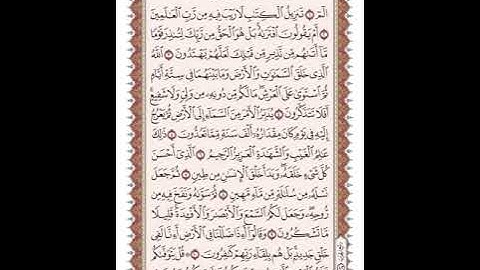 الٓمٓ ۝ تَنزِيلُ ٱلْكِتَٰبِ لَا رَيْبَ فِيهِ مِن رَّبِّ ٱلْعَٰلَمِينَ
۝ أَمْ يَقُولُونَ ٱفْتَرَىٰهُ بَلْ هُوَ ٱلْحَقُّ مِن رَّبِّكَ لِتُنذِرَ قَوْمًا
مَّآ أَتَىٰهُم مِّن نَّذِيرٍ مِّن قَبْلِكَ لَعَلَّهُمْ يَهْتَدُونَ ۝ ٱللَّهُ
ٱلَّذِى خَلَقَ ٱلسَّمَٰوَٰتِ وَٱلْأَرْضَ وَمَا بَيْنَهُمَا فِى سِتَّةِ أَيَّامٍ
ثُمَّ ٱسْتَوَىٰ عَلَى ٱلْعَرْشِ مَا لَكُم مِّن دُونِهِۦ مِن وَلِىٍّ وَلَا شَفِيعٍ
أَفَلَا تَتَذَكَّرُونَ ۝ يُدَبِّرُ ٱلْأَمْرَ مِنَ ٱلسَّمَآءِ إِلَى ٱلْأَرْضِ ثُمَّ يَعْرُجُ
إِلَيْهِ فِى يَوْمٍ كَانَ مِقْدَارُهُۥٓ أَلْفَ سَنَةٍ مِّمَّا تَعُدُّونَ ۝ ذَٰلِكَ
عَٰلِمُ ٱلْغَيْبِ وَٱلشَّهَٰدَةِ ٱلْعَزِيزُ ٱلرَّحِيمُ ۝ ٱلَّذِىٓ أَحْسَنَ
كُلَّ شَىْءٍ خَلَقَهُۥ وَبَدَأَ خَلْقَ ٱلْإِنسَٰنِ مِن طِينٍ ۝ ثُمَّ جَعَلَ
نَسْلَهُۥ مِن سُلَٰلَةٍ مِّن مَّآءٍ مَّهِينٍ ۝ ثُمَّ سَوَّىٰهُ وَنَفَخَ فِيهِ مِن
رُّوحِهِۦ وَجَعَلَ لَكُمُ ٱلسَّمْعَ وَٱلْأَبْصَٰرَ وَٱلْأَفْـِٔدَةَ قَلِيلًا
مَّا تَشْكُرُونَ ۝ وَقَالُوٓا۟ أَءِذَا ضَلَلْنَا فِى ٱلْأَرْضِ أَءِنَّا لَفِى
خَلْقٍ جَدِيدٍۭ بَلْ هُم بِلِقَآءِ رَبِّهِمْ كَٰفِرُونَ ۝ قُلْ يَتَوَفَّىٰكُم